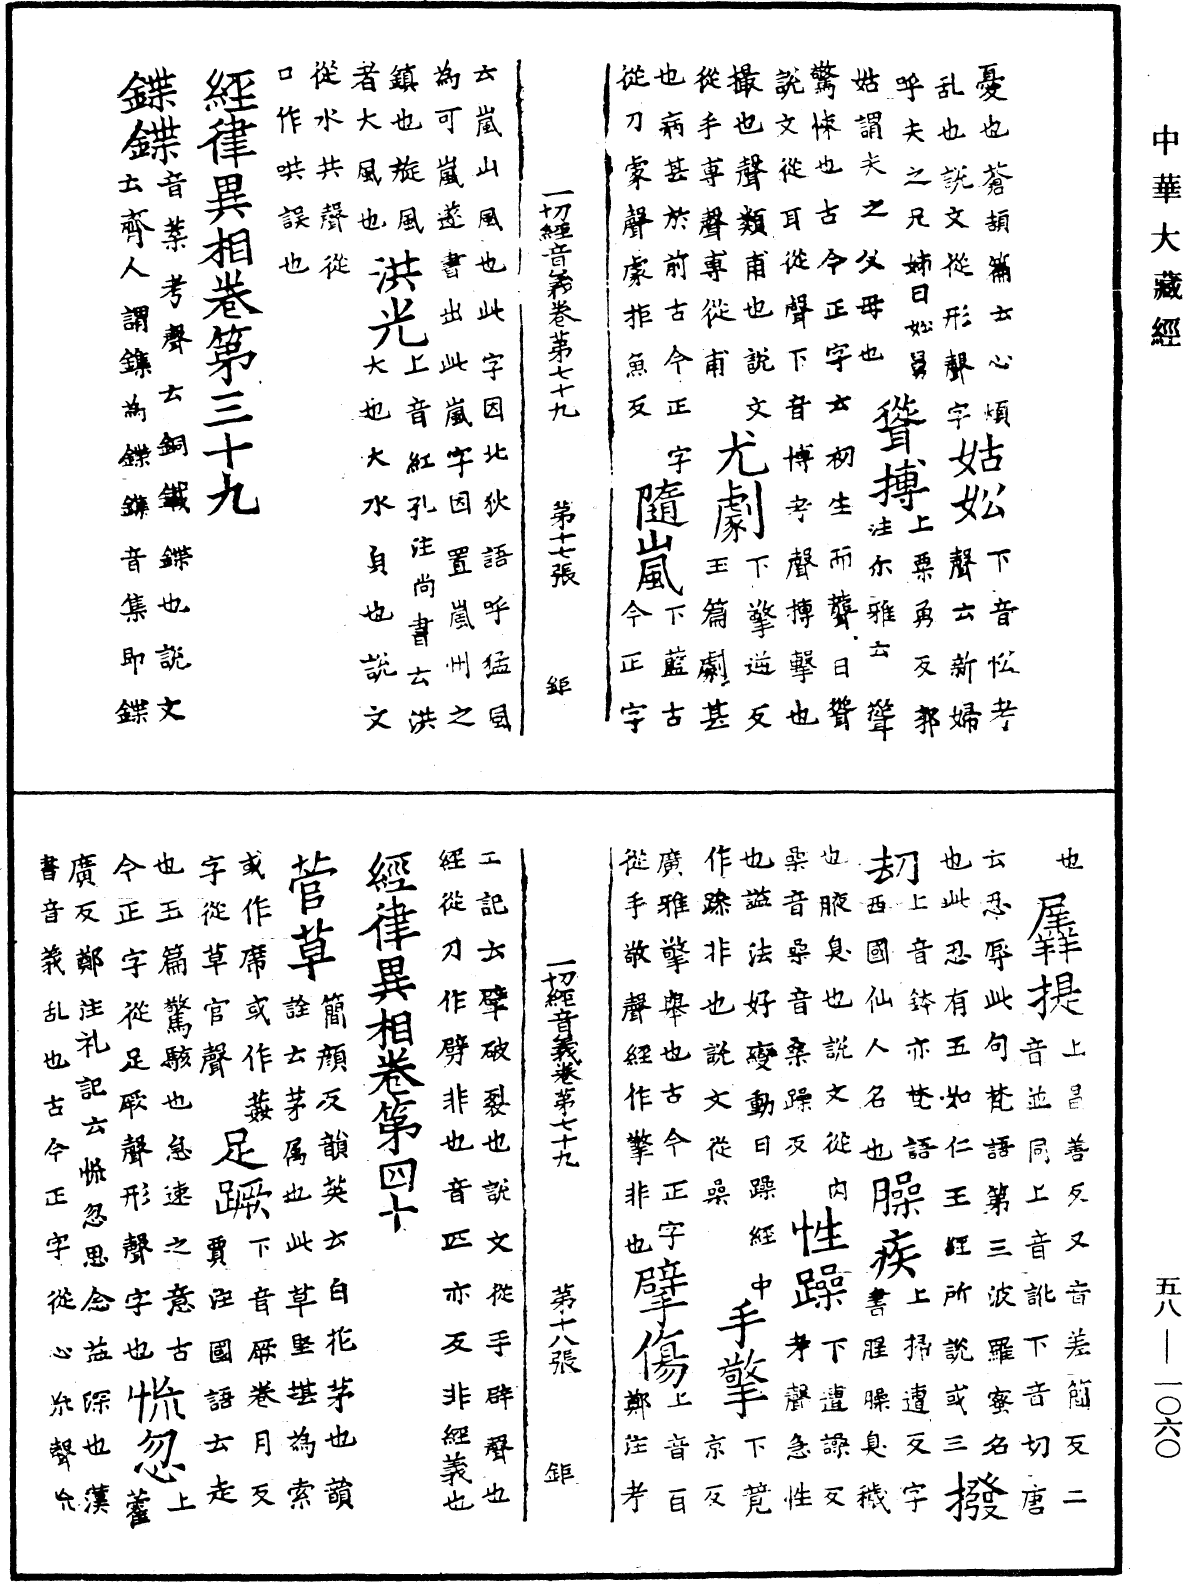 中華大藏經
憂也蒼頡篇云心煩
乱也說文從形聲字姑妐下音忪考
聲云新婦
呼夫之兄姊曰妐郭
注尒雅云
姑謂夫之父母也聳搏上粟勇反
驚悚也古今正字云初生而聾曰聳
說文從耳從聲下音博考聲搏擊也
撮也聲類甫也說文
從手尃聲尃從甫尤劇下擎逆反
玉篇劇甚
也病甚於前古今正字
從刀豦聲豦拒魚反隨嵐下藍古
今正字
一切經音義卷第七十九 第十七張 鉅
云嵐山風也此字因北狄語呼猛風
為可嵐遂書出此嵐字因置嵐州之
鎮也旋風洪光上音紅孔注尚書云洪
者大風也大也大水皃也說文
從水共聲從
口作哄誤也
經律異相卷第三十九
鍱鍱音葉考聲云銅鐵鍱也說文
云齊人謂鏶為鍱鏶音集即鍱
也羼提上昌善反又音差簡反二
音並同上音訛下音切唐
云忍辱此句梵語第三波羅蜜名
也此忍有五如仁王經所說或三撥
劫上音鉢亦梵語
西國仙人名也臊疾上掃遭反字
書胜臊臭穢
也腋臭也說文從肉
喿音桑音桑躁反性躁下遭譟反
考聲急性
也謚法好變動曰躁經中
作踈非也說文從喿手擎下竟
京反
廣雅擎舉也古今正字
從手敬聲經作擎非也擘傷上音百
鄭注考
一切經音義卷第七十九 第十八張 鉅
工記云擘破裂也說文從手辟聲也
經從刀作劈非也音匹亦反非經義也
經律異相卷第四十
菅草簡顔反韻英云白花茅也韻
詮云茅属也此草堅堪為索
或作席或作葌
字從草官聲足蹶下音厥卷月反
賈注國語云走
也玉篇驚駭也急速之意古
今正字從足厥聲形聲字也慌忽上
荒
廣反鄭注礼記云慌忽思念益深也漢
書音義乱也古今正字從心㐬聲㐬
五八—一〇六〇